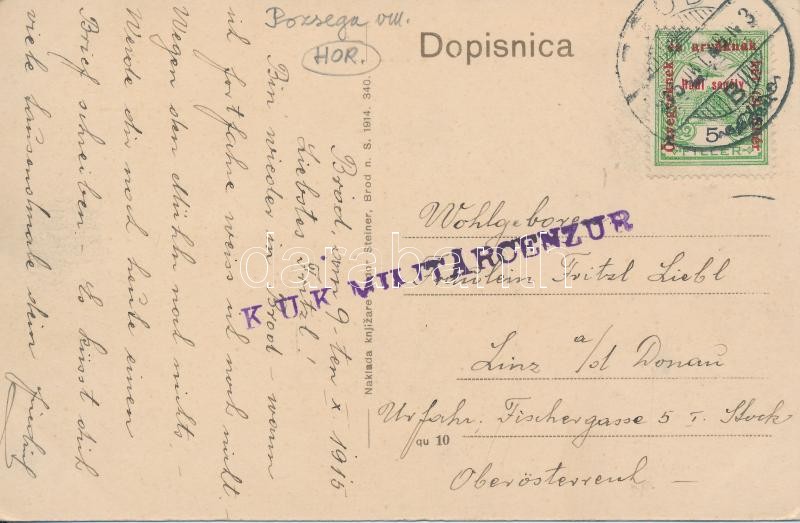 Pozsega vm.
HOR.
Dopisnica
Özvegyeknek és árváknak
Hadi segély
5
FILLÉR
BROD
Brod, am 9-ten X 1915
Liebstes Fritzl!
Bin wieder in Brod – wann
ich fortfahre weiss ich noch nicht.
Wegen den Mühln noch nichts –
Werde dir noch heute einen
Brief schreiben – Es küsst dich
viele tausendmale dein
K. U. K. MILITÄRCENZUR
Naklada knjižare Steiner, Brod n. S. 1914. 340.
Wohlgeboren
Fräulein Fritzl Liebl
Linz a/d Donau
Urfahr. Fischergasse 5 I. Stock
qu 10
Oberösterreich
darabanth